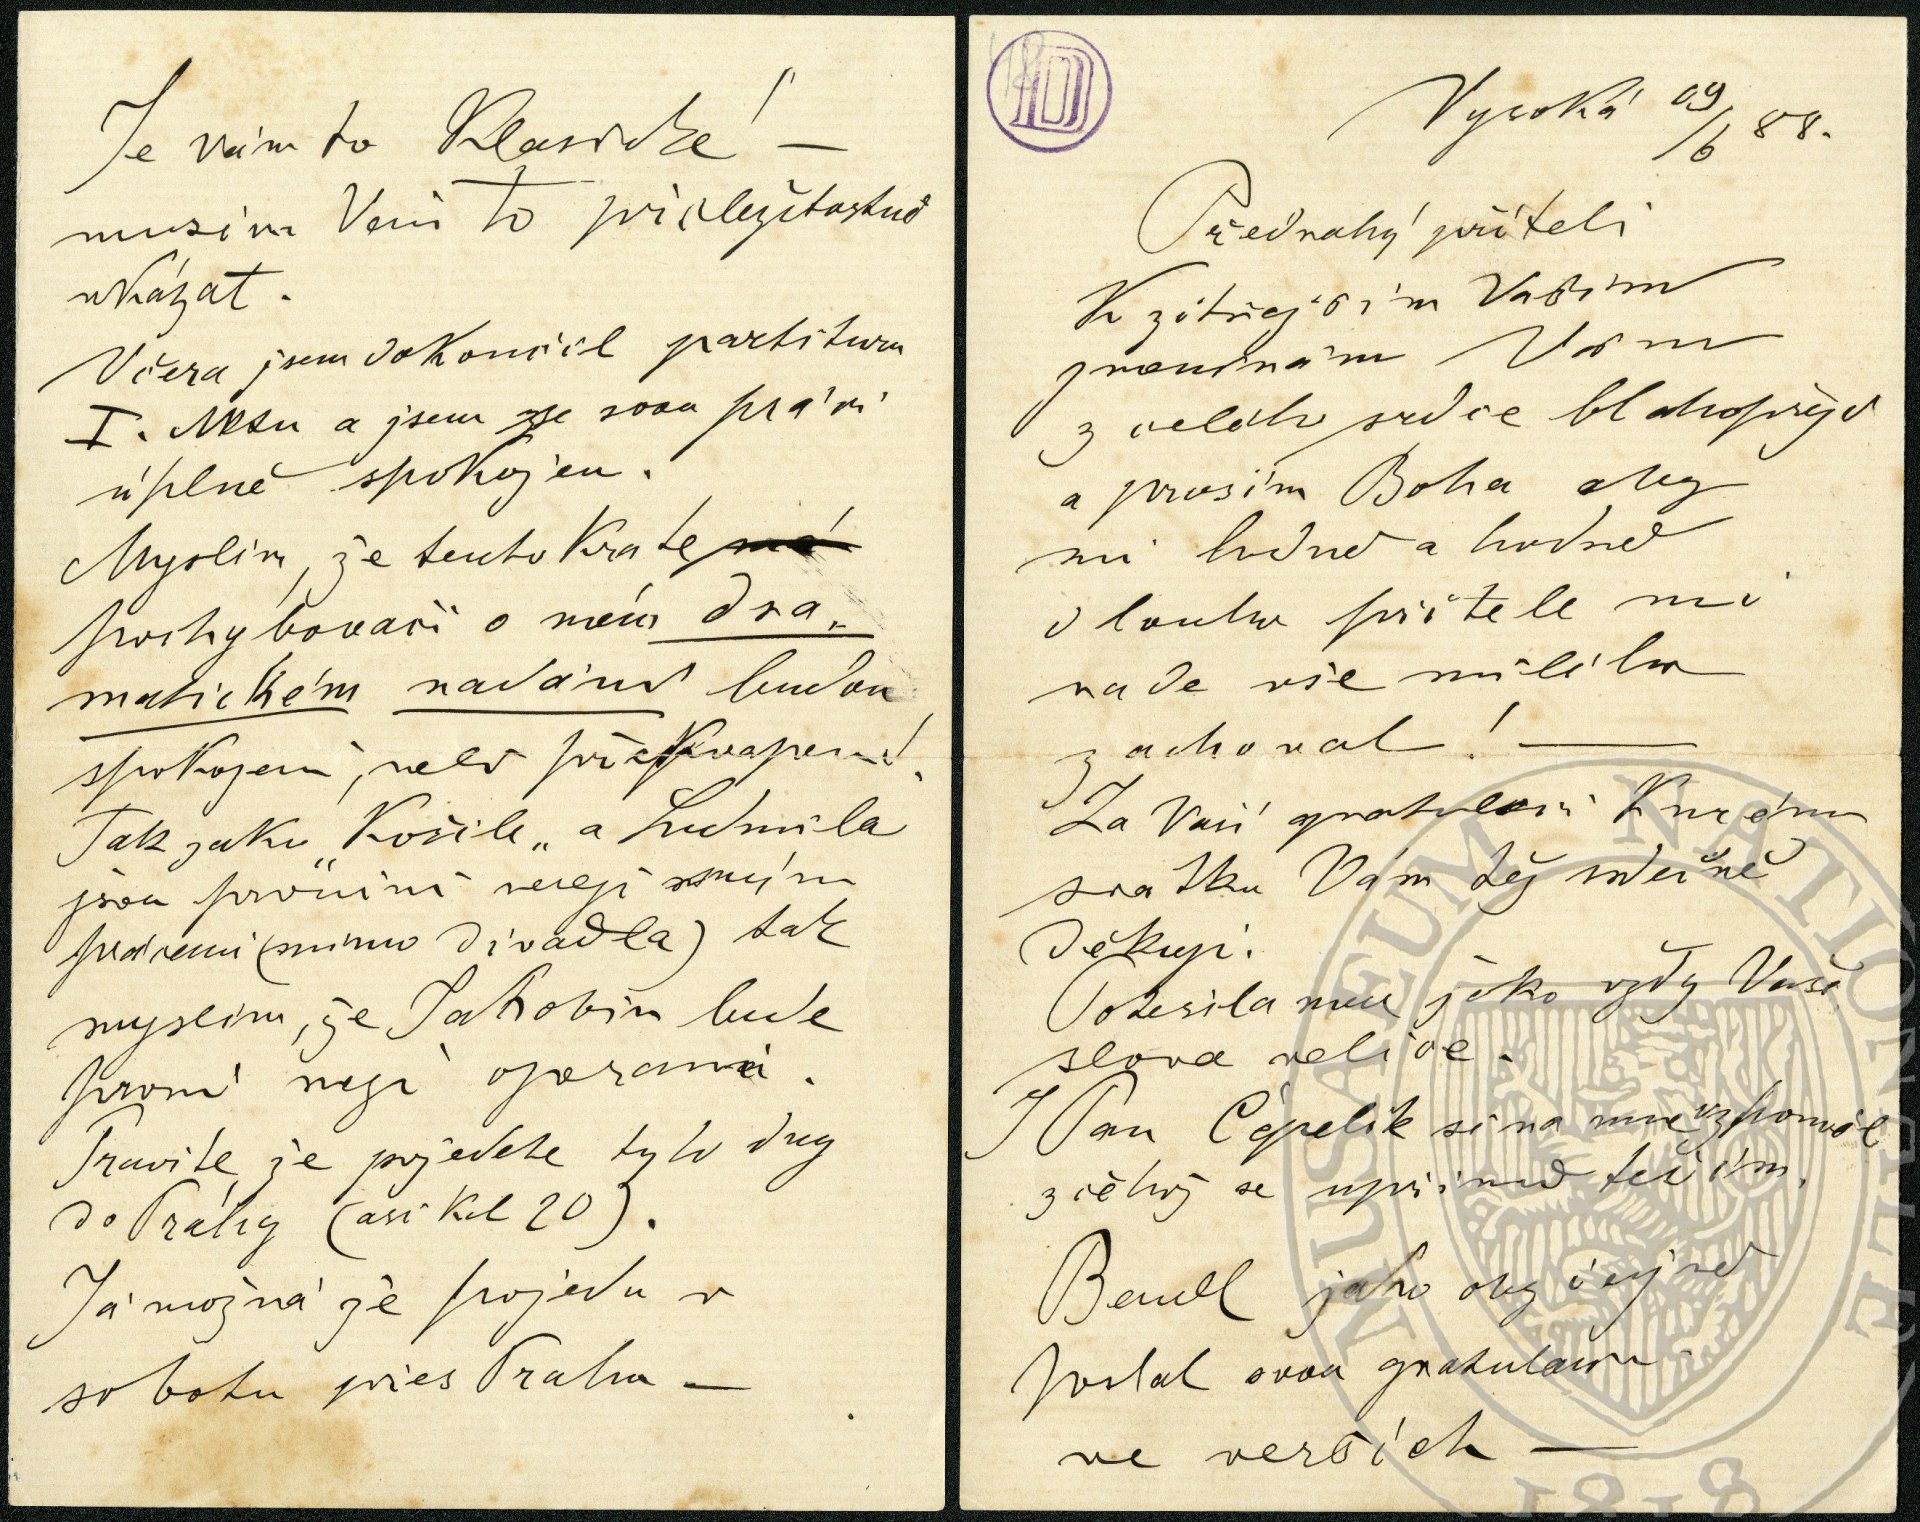 Vysoká 19/6 88.
Předrahý příteli
K zítřejším Vašim
jmeninám Vám
z celého srdce blahopřeji
a prosím Boha aby
mi hodně a hodně
dlouho přítele mi
nade vše milého
zachoval! —
Za Vaší gratulaci K mému
svátku Vám též srdečně
děkuji.
Potěsila mne jako vždy Vaše
slova velice.
I Pan Cápelík si na mne vzpomněl
z čehož se upřímně těším.
Bendl jako obyčejně
poslal svou gratulaci
ve verších —
Je vám to Klasické! —
musím Vám to příležitostně
ukázat.
Včera jsem dokončil partituru
I. Aktu a jsem se svou prací
úplně spokojen.
Myslím, že tentokráte
pochybovači o mém dra„
matickém nadání budou
spokojeni, nebo překvapeni.
Tak jako „Košile„ a Ludmila
jsou prvními mezi mými
pracemi (mimo divadla) tak
myslím, že Jakobín bude
první mezi operami.
Pravíte, že pojedete tyto dny
do Práhy (asi kol 20).
Já možná že pojedu v
sobotu přes Prahu —
MUSAEUM NATIONALE
1818